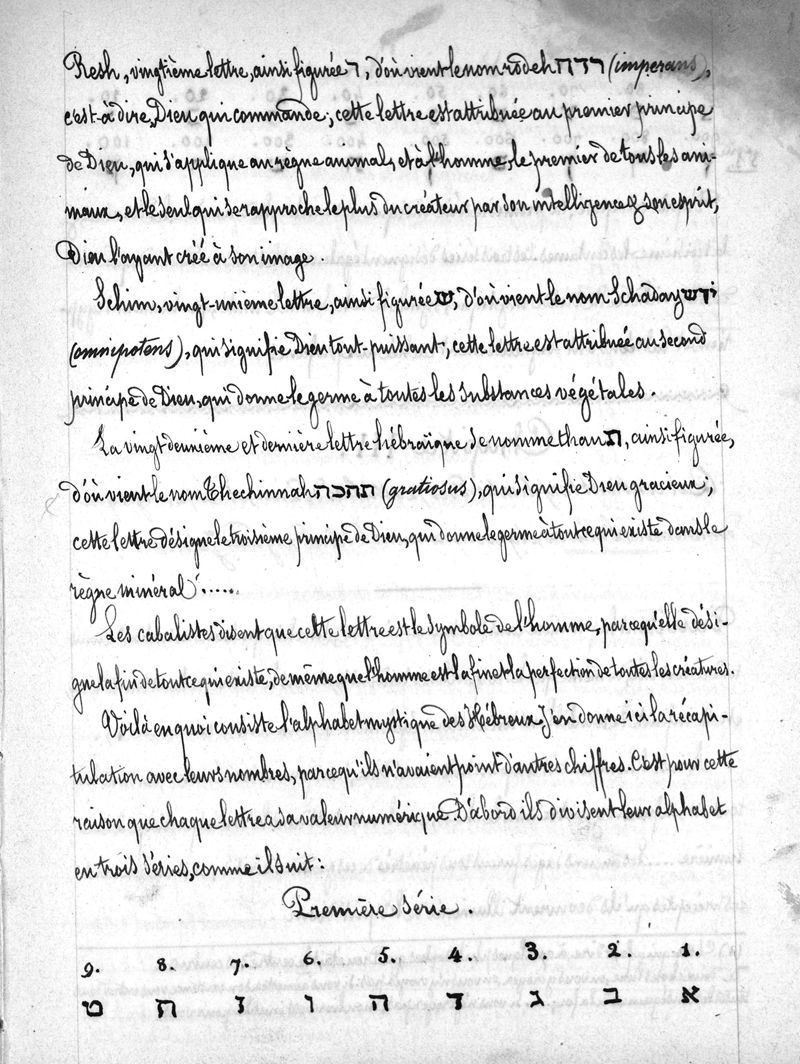 Resh, vingtième lettre, ainsi figurée ר, d'où vient le nom rodeh רדה (imperans),
c'est-à dire, Dieu qui commande; cette lettre est attribuée au premier principe
de Dieu, qui s'applique au règne animal, et à l'homme, le premier de tous les ani-
maux, et le seul qui se rapproche le plus du créateur par son intelligence & son esprit,
Dieu l'ayant créé à son image.
Schim, vingt-unième lettre, ainsi figurée ש, d'où vient le nom Schaday ידש
(omnipotens), qui signifie Dieu tout-puissant, cette lettre est attribuée au second
principe de Dieu, qui donne le germe à toutes les substances végétales.
La vingt deuxième et dernière lettre hébraïque se nomme thau ת, ainsi figurée,
d'où vient le nom Thechinnah תהכה (gratiosus), qui signifie Dieu gracieux;
cette lettre désigne le troisième principe de Dieu, qui donne le germe à tout ce qui existe dans le
règne minéral.....
Les cabalistes disent que cette lettre est le symbole de l'homme, parce qu'elle dési-
gne la fin de tout ce qui existe, de même que l'homme est la fin et la perfection de toutes les créatures.
Voilà en quoi consiste l'alphabet mystique des Hébreux J'en donne ici la récapi-
tulation avec leurs nombres, parce qu'ils n'avaient point d'autres chiffres. C'est pour cette
raison que chaque lettre a sa valeur numérique. D'abord ils divisent leur alphabet
en trois séries, comme il suit:
Première série.
9. 8. 7. 6. 5. 4. 3. 2. 1.
ט ח ז ו ה ד ג ב א